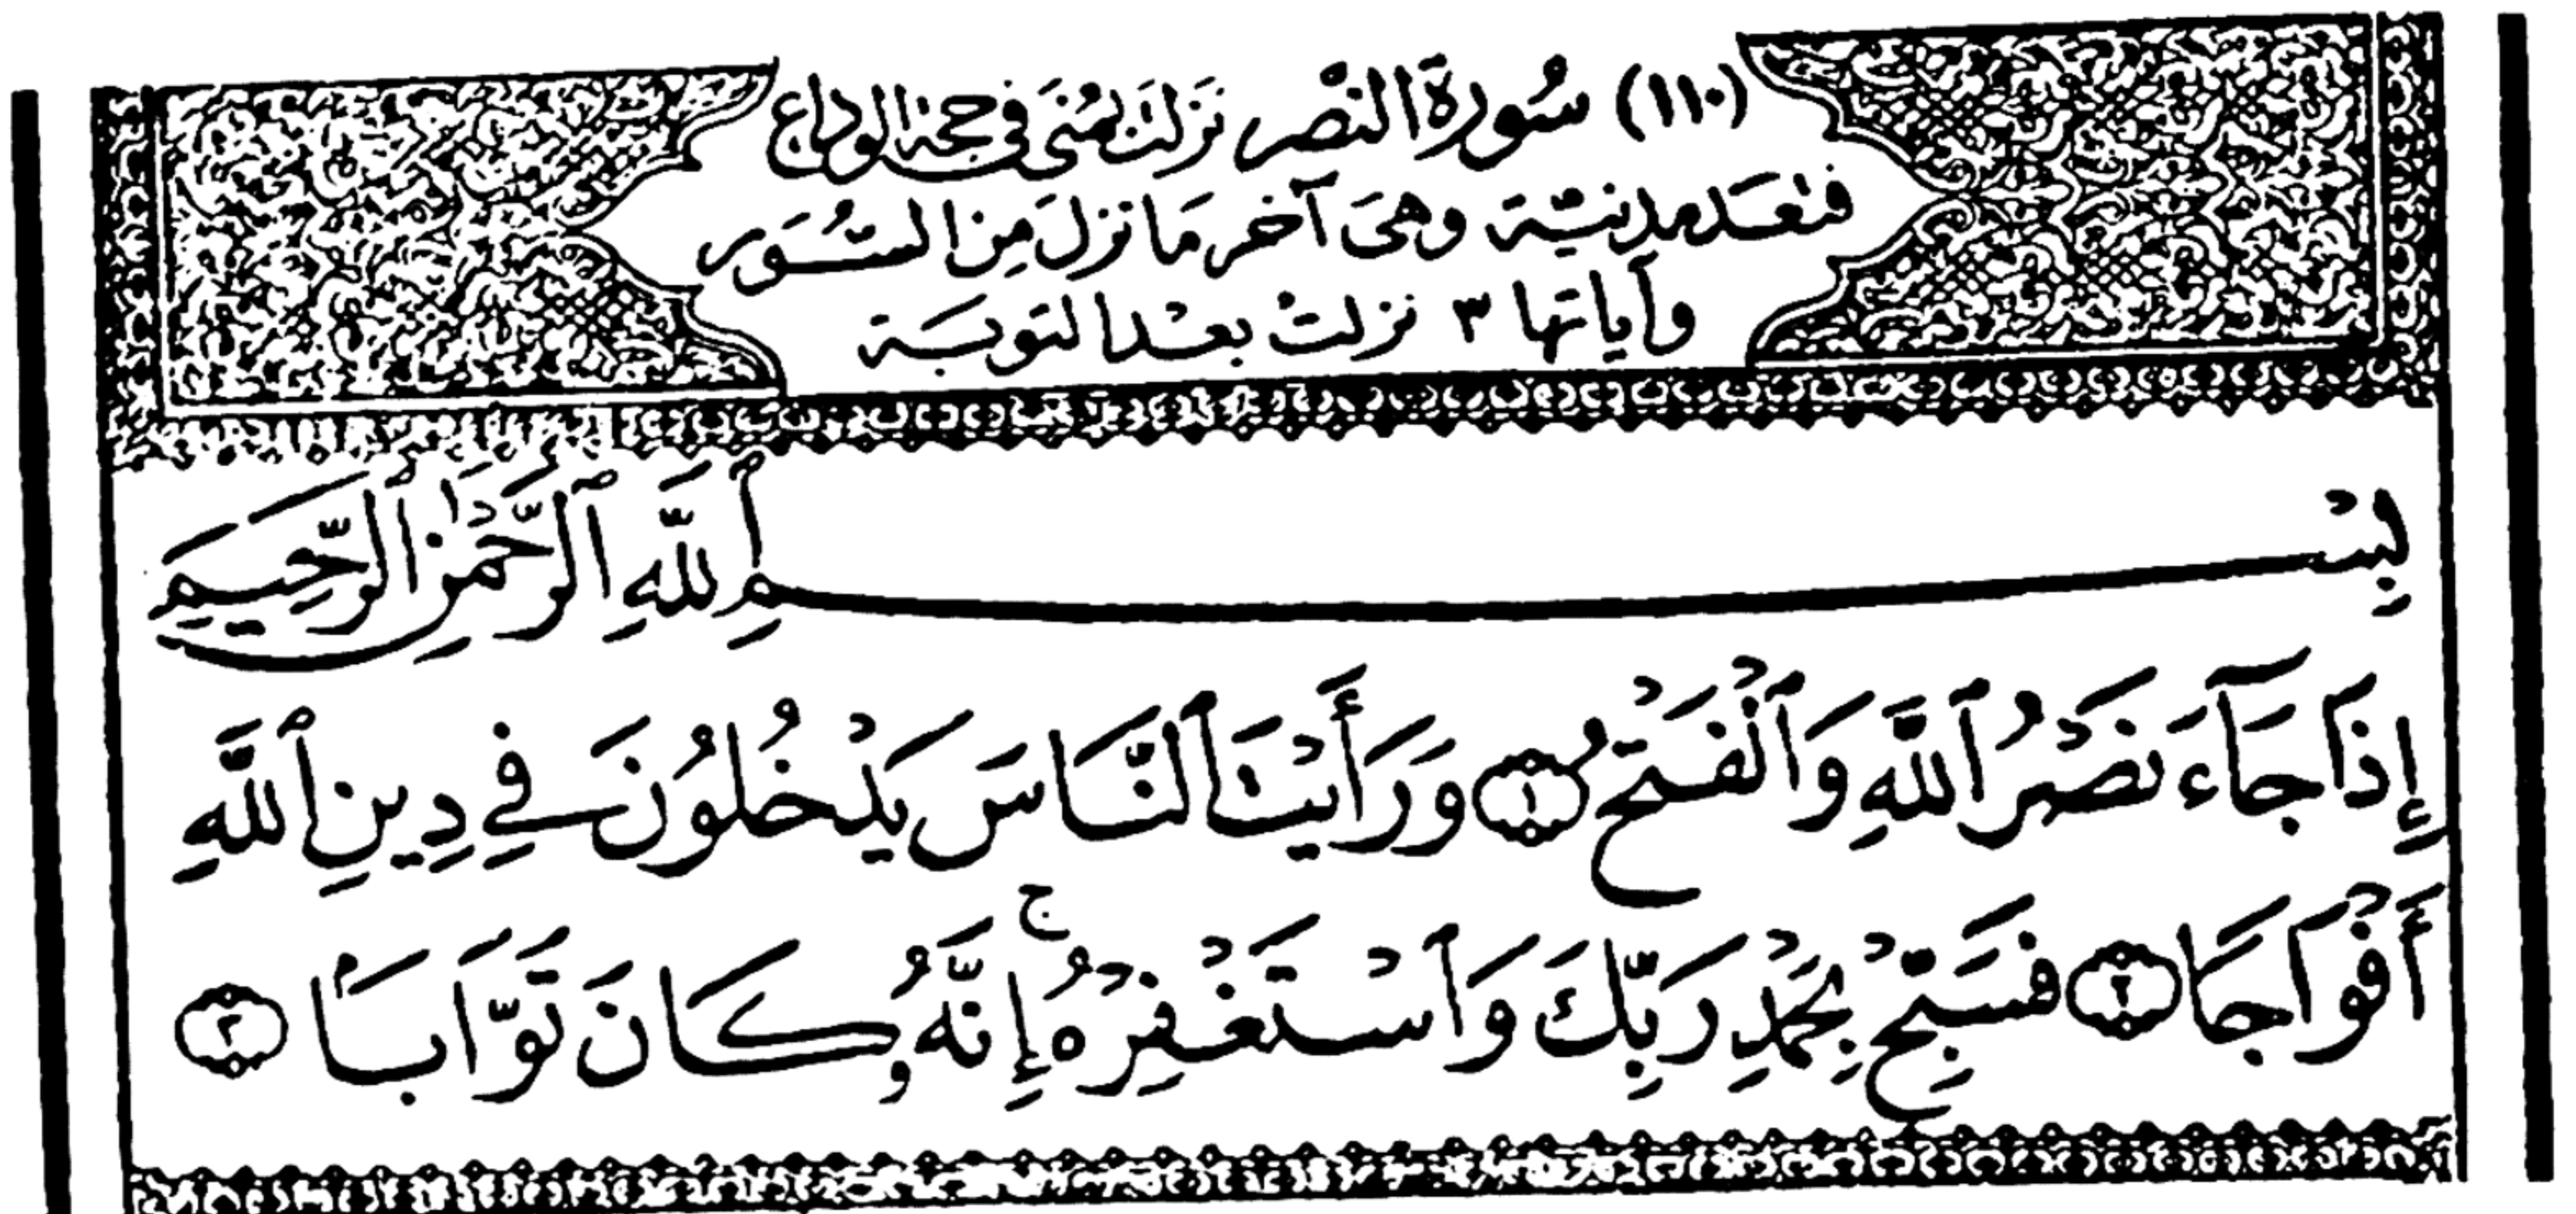 (١١٠) سُورَةُ النَّصْر نَزَلَتْ بِمِنَى فِي حَجَّة الوَدَاع
فتعَد مدنيّة وهىَ آخر مَا نزلَ مِنَ السُّوَر
وآياتها ٣ نزلتْ بعْد التوبَة
بِسْمِ ٱللَّهِ ٱلرَّحْمَٰنِ ٱلرَّحِيمِ
إِذَا جَآءَ نَصْرُ ٱللَّهِ وَٱلْفَتْحُ ١ وَرَأَيْتَ ٱلنَّاسَ يَدْخُلُونَ فِي دِينِ ٱللَّهِ
أَفْوَاجًا ٢ فَسَبِّحْ بِحَمْدِ رَبِّكَ وَٱسْتَغْفِرْهُ ۚ إِنَّهُۥ كَانَ تَوَّابًۢا ٣